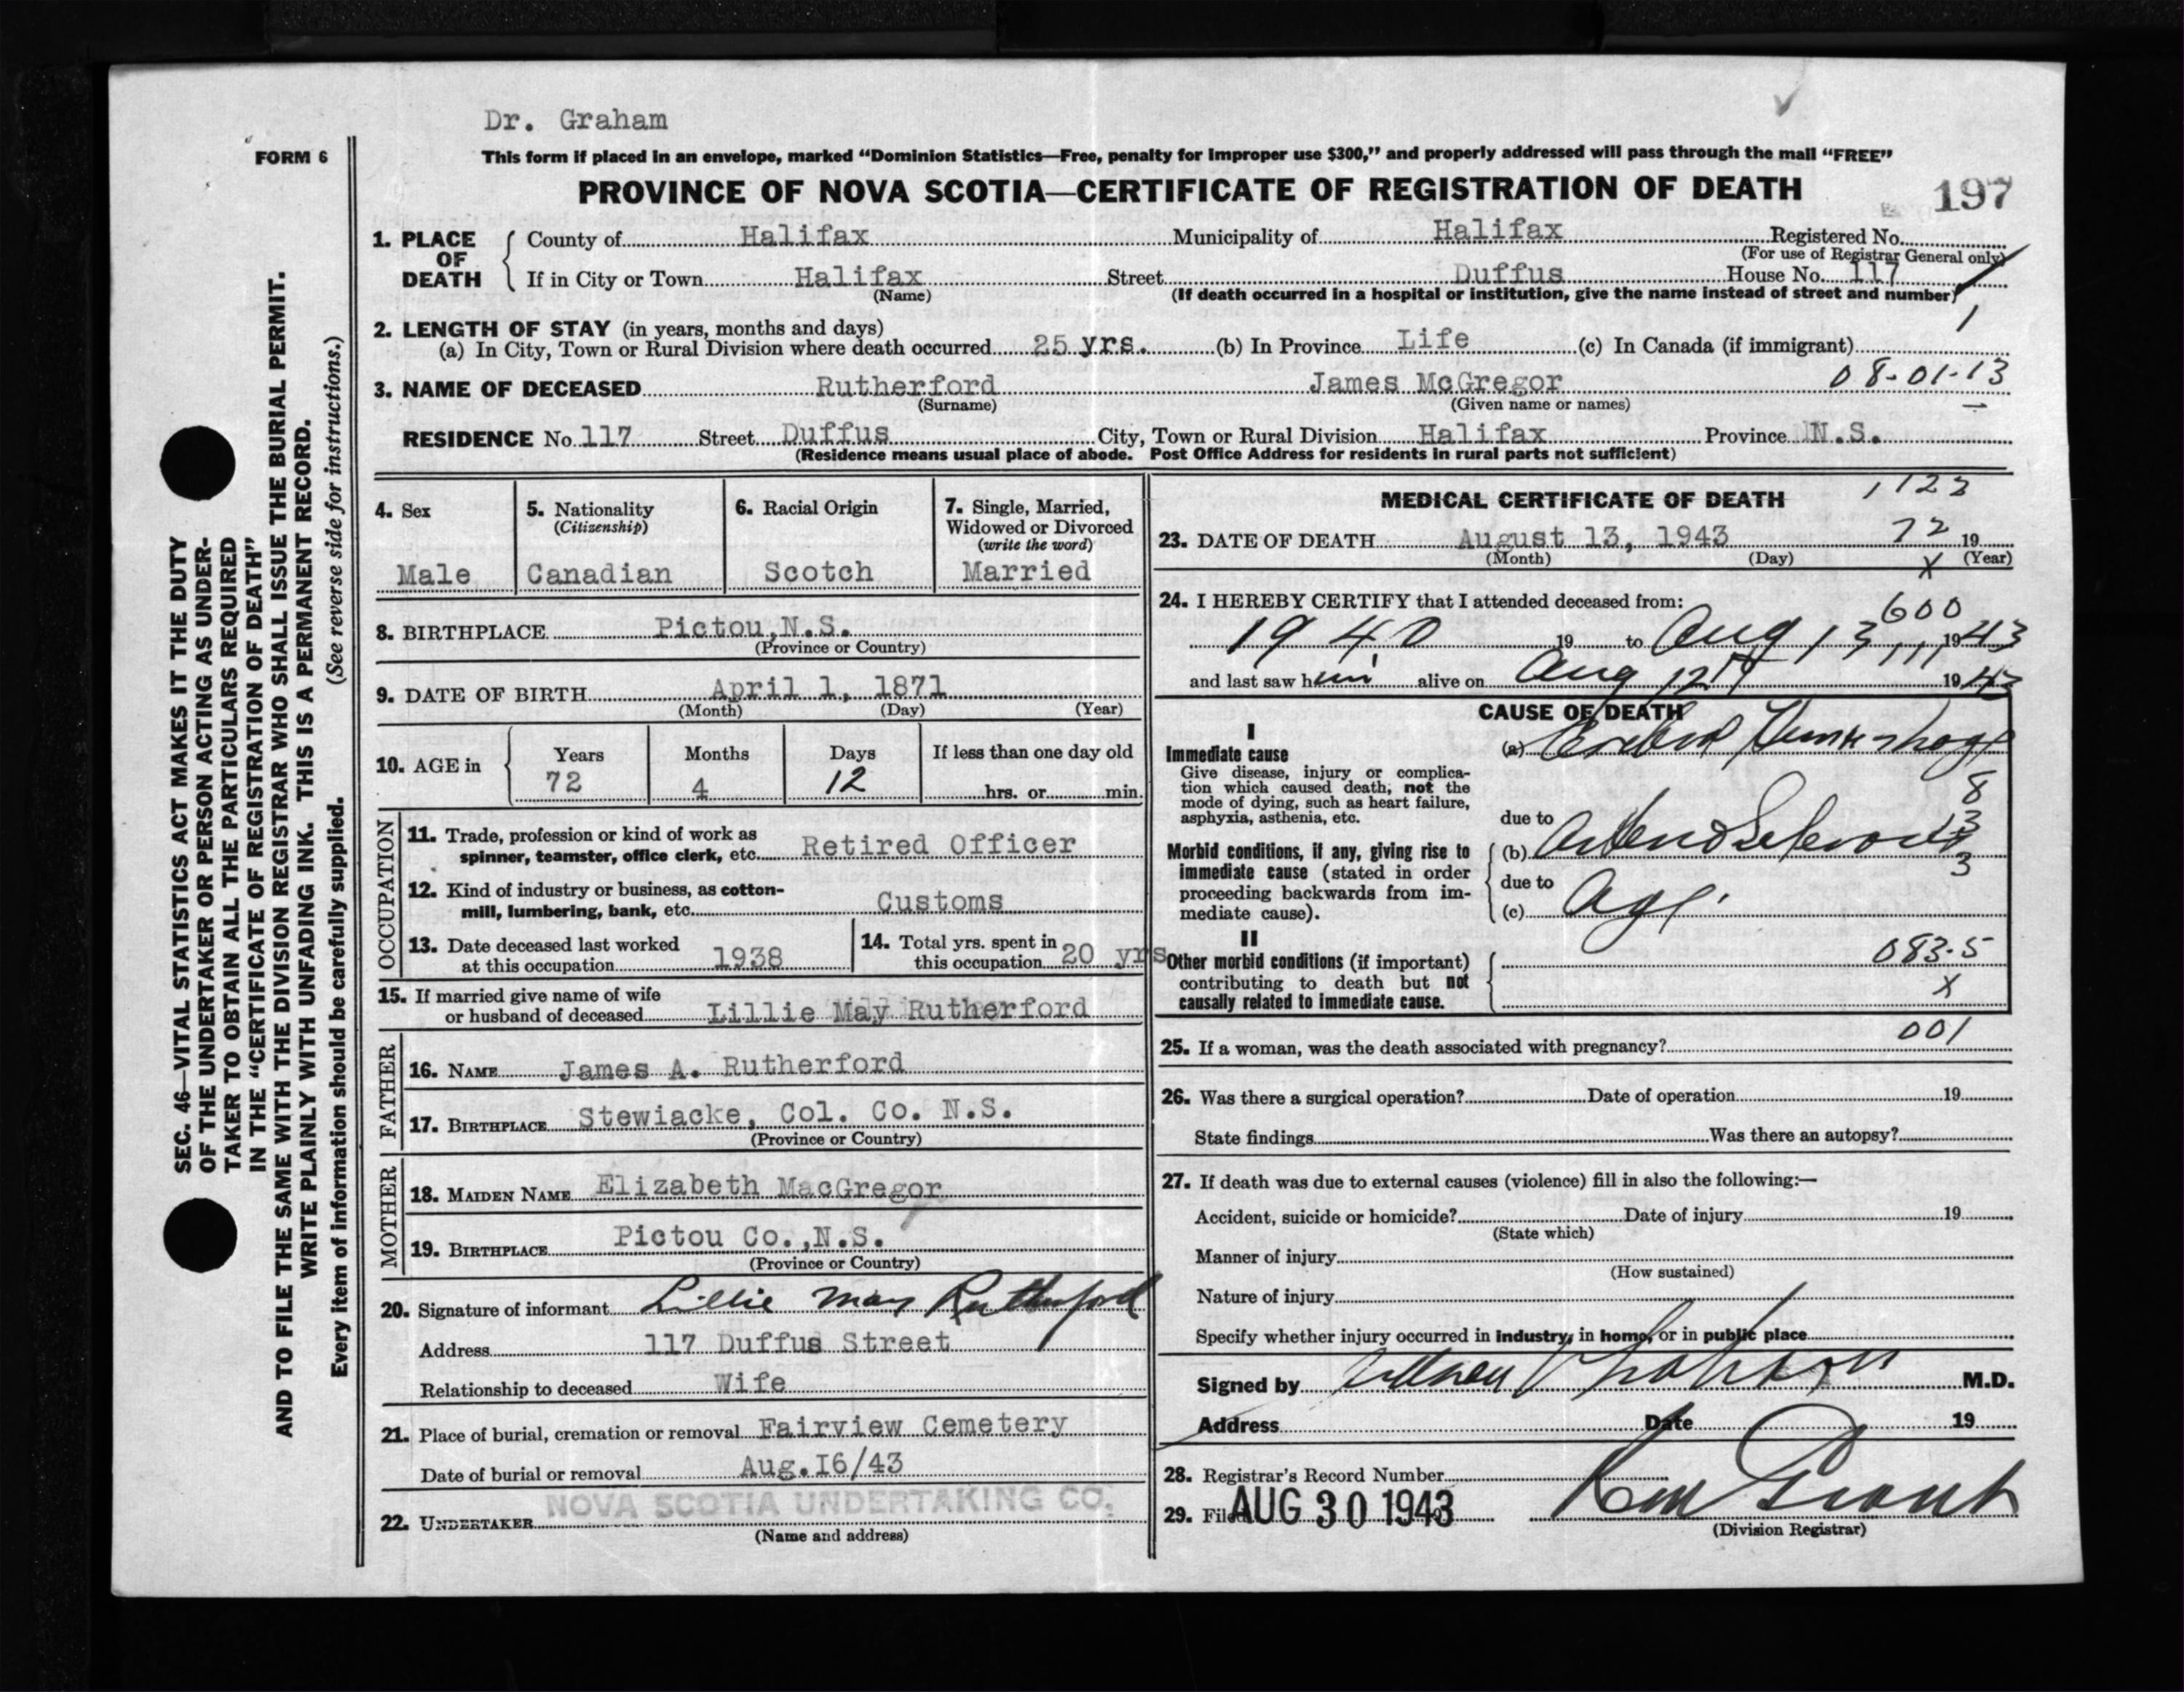 Dr. Graham
FORM 6
This form if placed in an envelope, marked “Dominion Statistics—Free, penalty for improper use $300,” and properly addressed will pass through the mail “FREE”
PROVINCE OF NOVA SCOTIA—CERTIFICATE OF REGISTRATION OF DEATH
197
1. PLACE OF DEATH
County of Halifax Municipality of Halifax Registered No.
(For use of Registrar General only)
If in City or Town Halifax Street Duffus House No. 117
(Name) (If death occurred in a hospital or institution, give the name instead of street and number)
2. LENGTH OF STAY (in years, months and days)
(a) In City, Town or Rural Division where death occurred 25 yrs. (b) In Province Life (c) In Canada (if immigrant)
3. NAME OF DECEASED Rutherford James McGregor 08-01-13
(Surname) (Given name or names)
RESIDENCE No. 117 Street Duffus City, Town or Rural Division Halifax Province N.S.
(Residence means usual place of abode. Post Office Address for residents in rural parts not sufficient)
SEC. 46—VITAL STATISTICS ACT MAKES IT THE DUTY
OF THE UNDERTAKER OR PERSON ACTING AS UNDER-
TAKER TO OBTAIN ALL THE PARTICULARS REQUIRED
IN THE “CERTIFICATE OF REGISTRATION OF DEATH”
AND TO FILE THE SAME WITH THE DIVISION REGISTRAR WHO SHALL ISSUE THE BURIAL PERMIT.
WRITE PLAINLY WITH UNFADING INK. THIS IS A PERMANENT RECORD.
Every item of information should be carefully supplied. (See reverse side for instructions.)
4. Sex
Male
5. Nationality
(Citizenship)
Canadian
6. Racial Origin
Scotch
7. Single, Married,
Widowed or Divorced
(write the word)
Married
8. BIRTHPLACE Pictou, N.S.
(Province or Country)
9. DATE OF BIRTH April 1, 1871
(Month) (Day) (Year)
10. AGE in
Years Months Days If less than one day old
72 4 12 hrs. or min.
OCCUPATION
11. Trade, profession or kind of work as
spinner, teamster, office clerk, etc. Retired Officer
12. Kind of industry or business, as cotton-
mill, lumbering, bank, etc. Customs
13. Date deceased last worked
at this occupation 1938
14. Total yrs. spent in
this occupation 20 yrs
15. If married give name of wife
or husband of deceased Lillie May Rutherford
FATHER
16. NAME James A. Rutherford
17. BIRTHPLACE Stewiacke, Col. Co. N.S.
(Province or Country)
MOTHER
18. MAIDEN NAME Elizabeth MacGregor
19. BIRTHPLACE Pictou Co., N.S.
(Province or Country)
20. Signature of informant Lillie May Rutherford
Address 117 Duffus Street
Relationship to deceased Wife
21. Place of burial, cremation or removal Fairview Cemetery
Date of burial or removal Aug. I6/43
22. UNDERTAKER NOVA SCOTIA UNDERTAKING CO.
(Name and address)
MEDICAL CERTIFICATE OF DEATH 1123
23. DATE OF DEATH August 13, 1943 72 19
(Month) (Day) X (Year)
24. I HEREBY CERTIFY that I attended deceased from: 600
1940 19 to Aug 13 1943
and last saw him alive on Aug 12th 1943
CAUSE OF DEATH
I
Immediate cause
Give disease, injury or complica-
tion which caused death, not the
mode of dying, such as heart failure,
asphyxia, asthenia, etc.
(a) Cerebral Hemorrhage
8
due to
3
Morbid conditions, if any, giving rise to
immediate cause (stated in order
proceeding backwards from im-
mediate cause).
(b) Arteriosclerosis
3
due to
(c) Age
II
Other morbid conditions (if important)
contributing to death but not
causally related to immediate cause.
083.5
X
001
25. If a woman, was the death associated with pregnancy?
26. Was there a surgical operation? Date of operation 19
State findings Was there an autopsy?
27. If death was due to external causes (violence) fill in also the following:—
Accident, suicide or homicide? Date of injury 19
(State which)
Manner of injury
(How sustained)
Nature of injury
Specify whether injury occurred in industry, in home, or in public place
Signed by M.D.
Address Date 19
28. Registrar's Record Number
29. Filed AUG 30 1943 Grant
(Division Registrar)